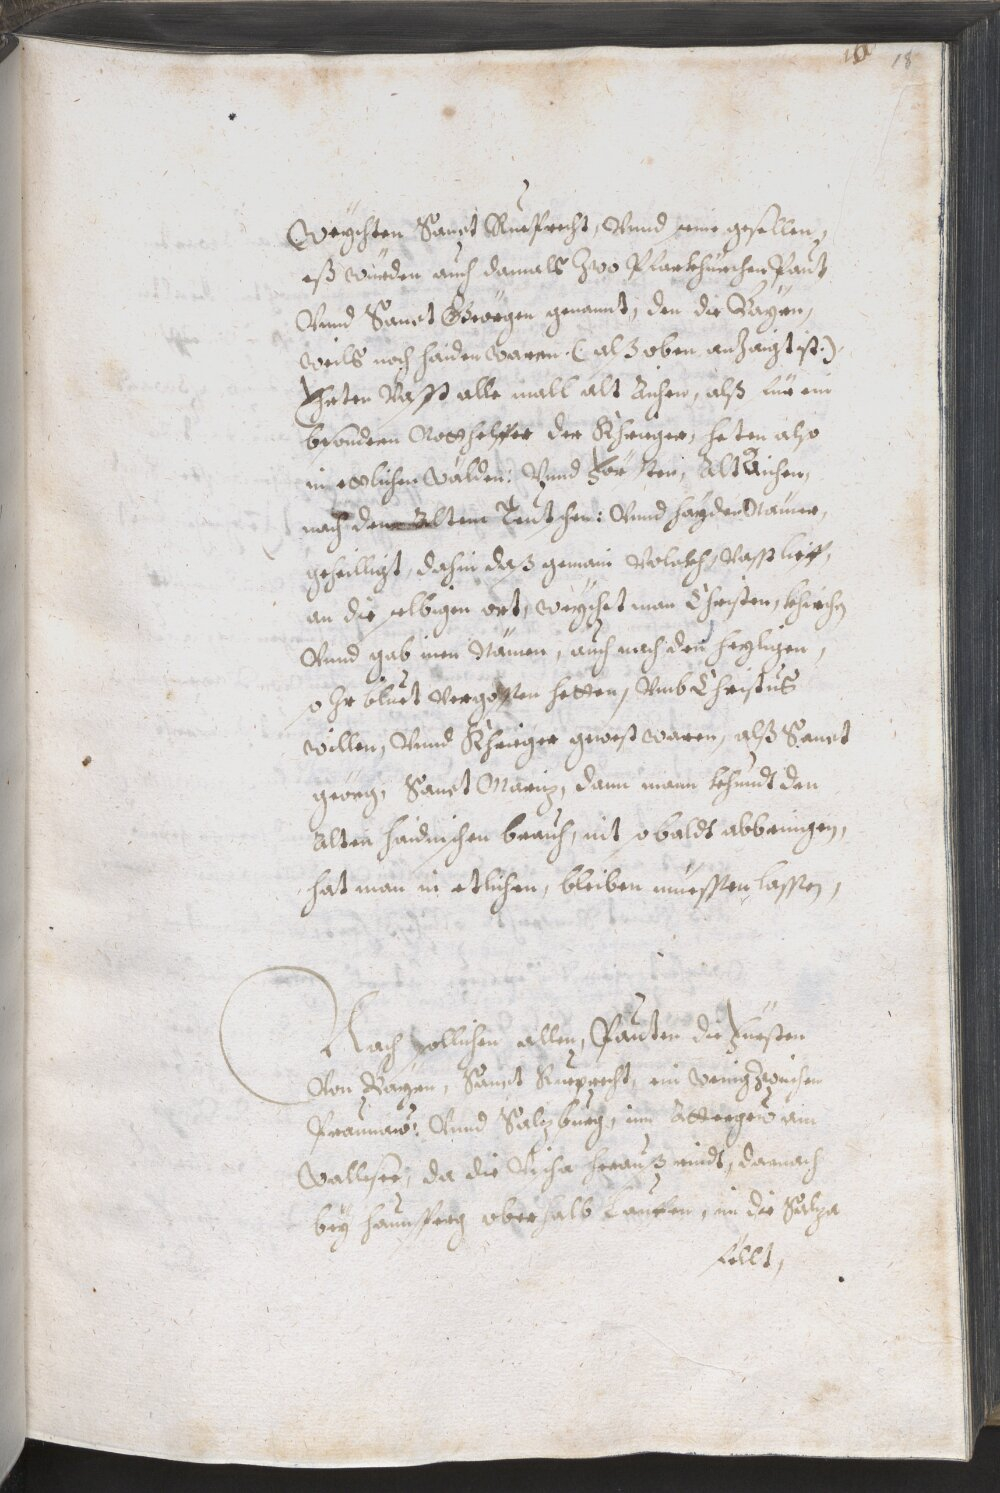 10 18
Weÿchten Sanct Rueprecht, Vnnd seine gesellen,
eß wurden auch damals Zwo Pfarkhürchen Paut
Vnnd Sanct Geörgen genannt, den die Bayrn,
weils noch haiden waren (alß oben anZaigt ist.)
Ehrten Vasst alle mall alt Aichen, alß für ein
besondern Nothelffer der Khrieger, heten also
in etlichen Wälden: Vnnd Förstten, Alt Aichen,
nach dem Altem Teutschen: Vnnd hayden Namen,
geheilligt, dahin daß gemain Volckh, Vasst lieff,
an die selbigen ort, weÿchet man Christen, khirchen
Vnnd gab inen Nämen, auch nach den heyligen,
so Ihr bluet Vergossen hetten, Vmb Christus
willen, Vnnd Khrieger gwest waren, alß Sanct
geörg, Sanct Mariz, dann mann khundt den
Alten haidnischen brauch, nit so baldt abbringen,
hat man in etlichen, bleiben müessten lassen,
Nach sollichen allen, Pauten die Fürsten
Von Bayrn, Sanct Rueprecht, ein wenig Zwischen
Praunaw: Vnnd Salzburg, im Attergew am
Wallsee, da die Vischa herauß rindt, darnach
beÿ haunsperg oberhalb Lauffen, in die Salza
fellt,